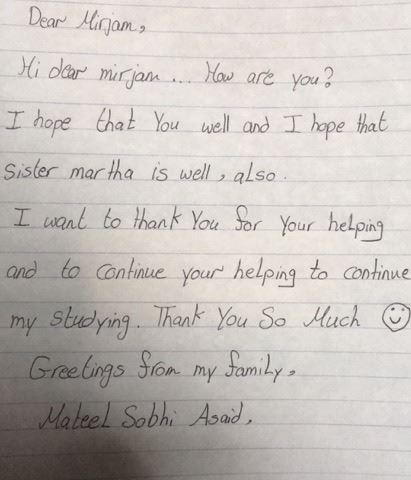 Dear Mirjam,
Hi dear mirjam ... How are you?
I hope that You well and I hope that
sister martha is well, also.
I want to thank You for Your helping
and to continue your helping to continue
my studying. Thank You So Much ☺
Greetings from my family,
Mateel Sobhi Asaid.